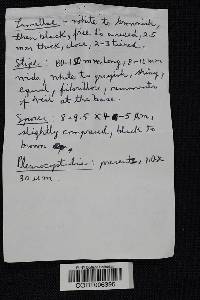 Lamellae - white to brownish,
then black, free to adnexed, 2.5
mm thick, close, 2-3 tiered.
Stipe: 80-150 mm long, 8-12 mm
wide, white to grayish, shiny,
equal, fibrillose, remnants
of veil at the base.
Spores: 8-9.5 x 4-5 µm,
slightly compressed, black to
brown
Pleurocystidia: present,
30 µm.